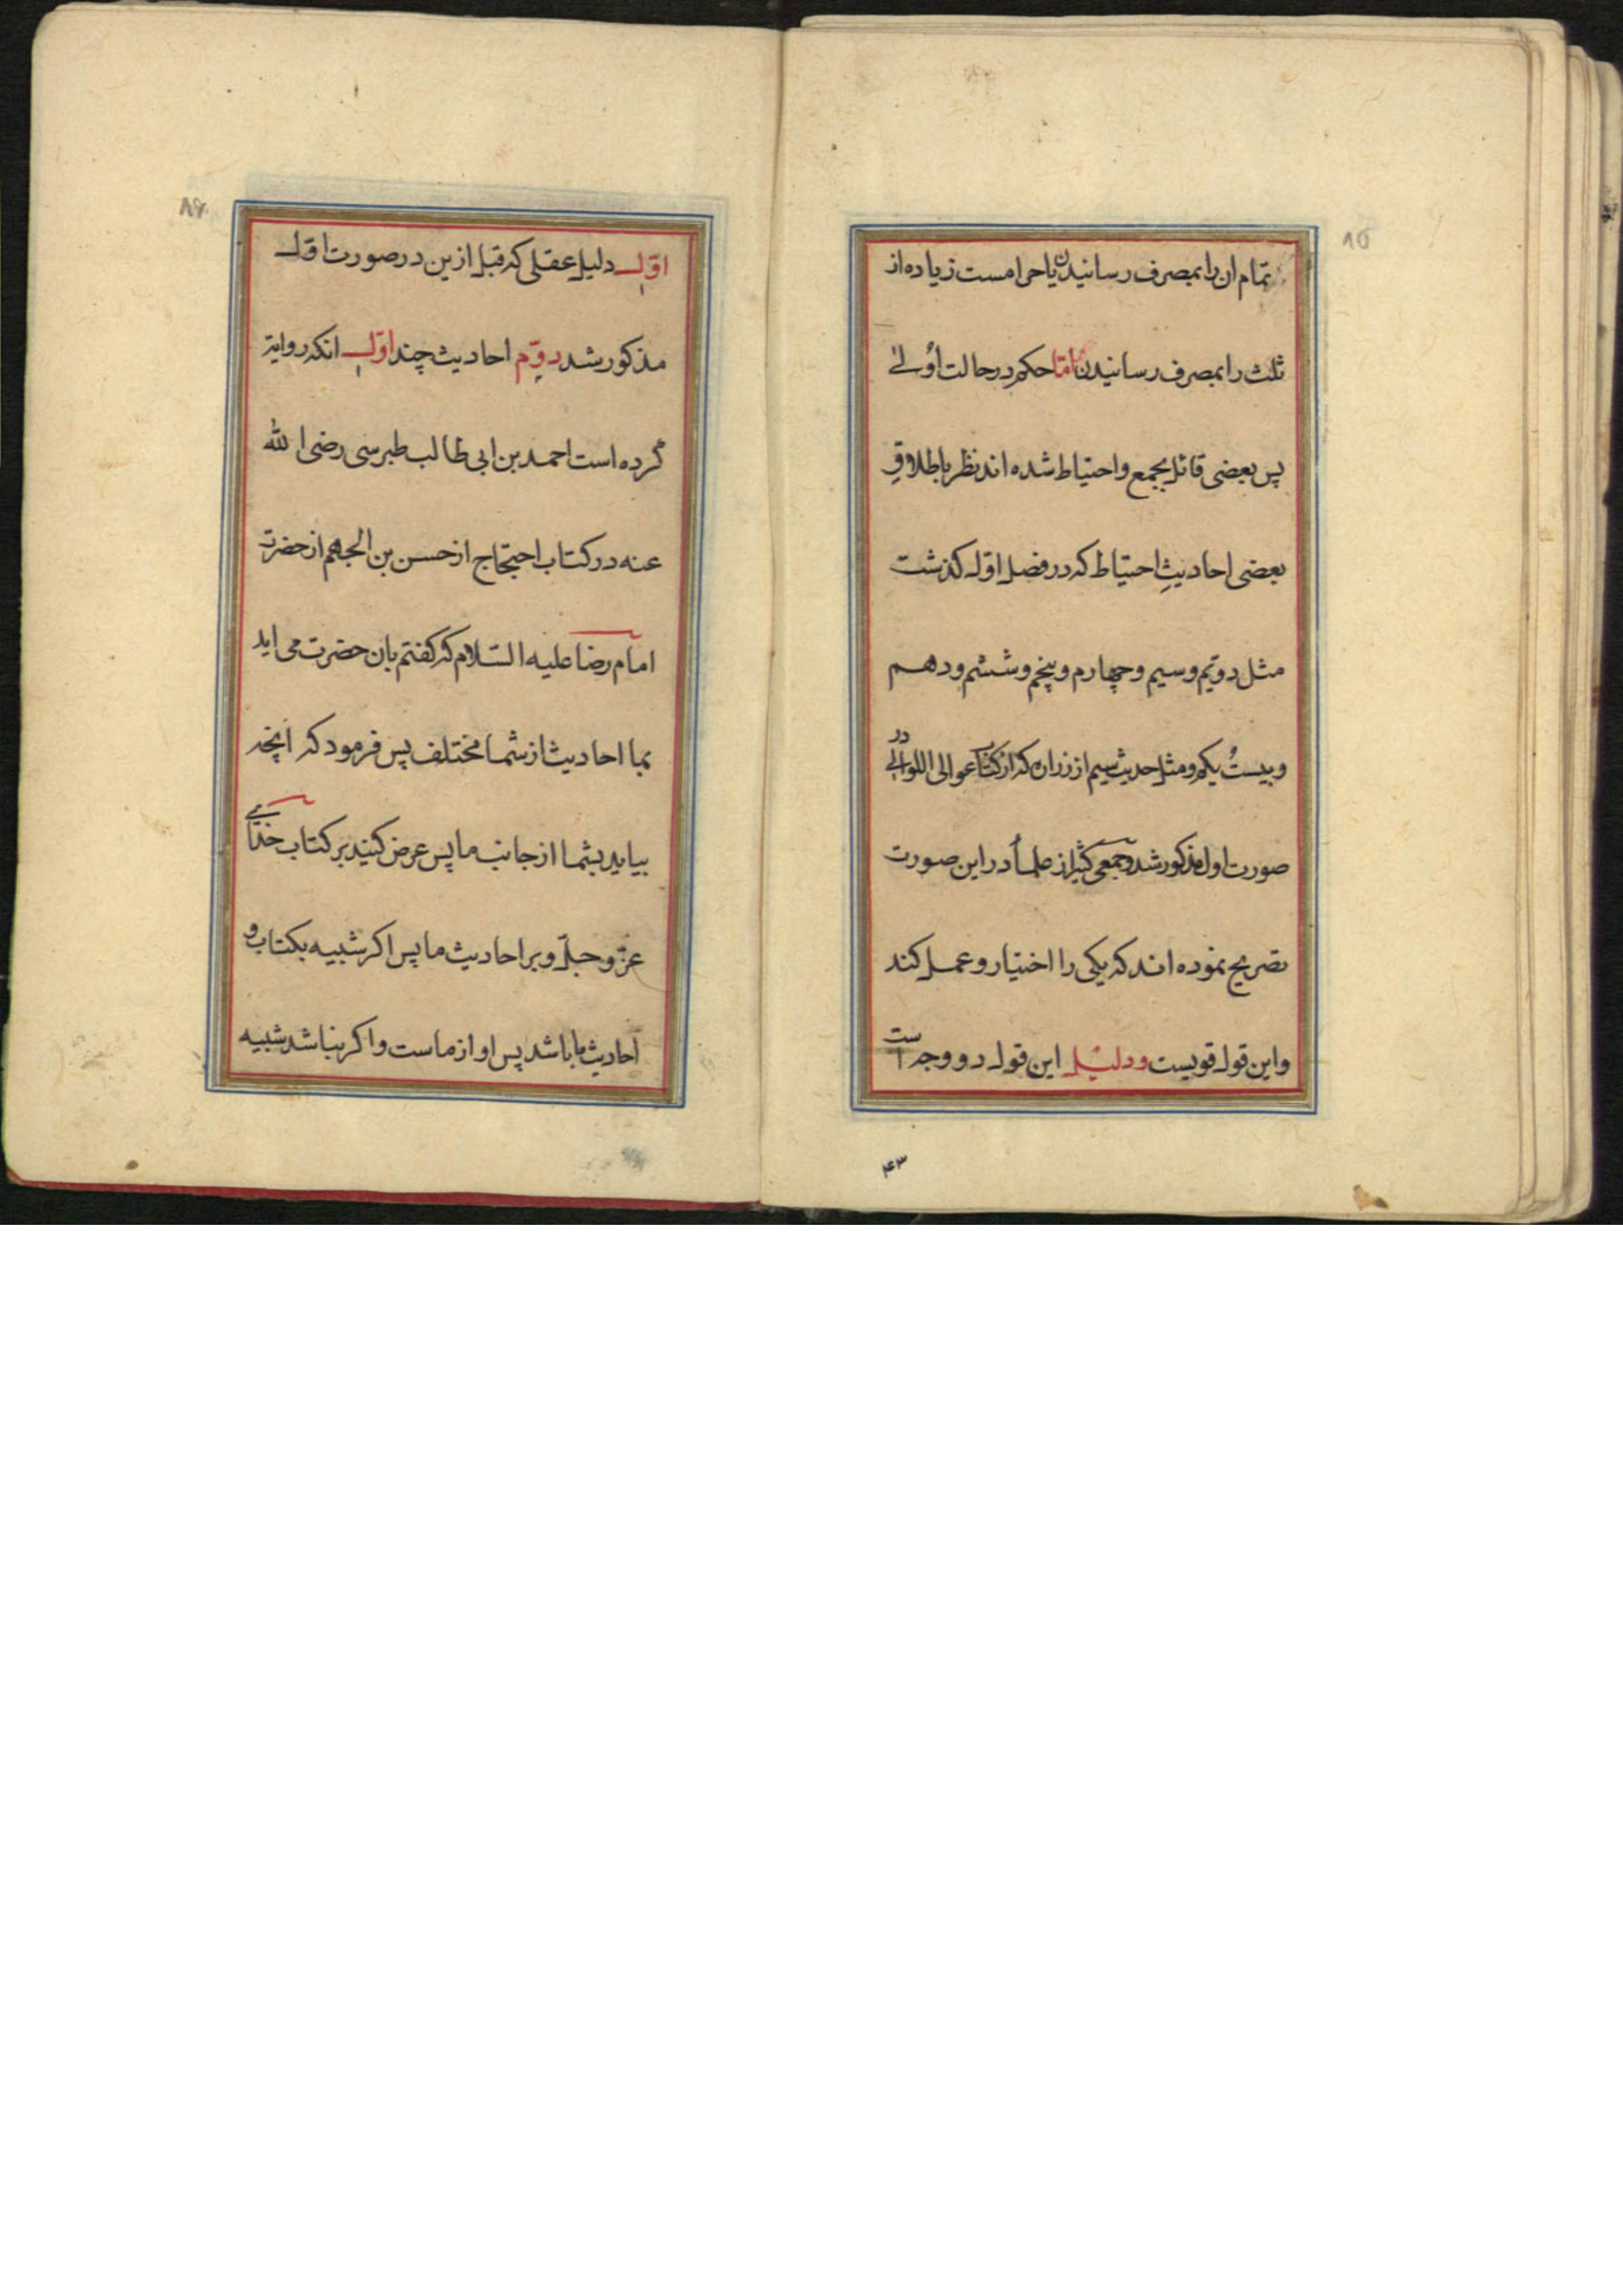 ۸۵
تمام ان را بمصرف رسانیدن یا حرامست زیاده از
ثلث را بمصرف رسانیدن امّا حکم در حالت اُولی
پس بعضی قائل بجمع و احتیاط شده اند نظر باطلاقِ
بعضی احادیثِ احتیاط که در فصل اوّل کذشت
مثل دویّم و سیم و چهارم و پنجم و ششم و دهم
و بیستُ یکم و مثل حدیث سیم از زراره که از کتاب عوالی اللوالی در
صورت اول مذکور شد و جمعی کثیر از علمأ در این صورت
تصریح نموده اند که یکی را اختیار و عمل کند
و این قول قویست و دلیل این قول دو وجه است
۴۳
۸۶
اوّل دلیل عقلی که قبل ازین در صورت اوّل
مذکور شد دوّم احادیث چند اوّل انکه روایة
کرده است احمد بن ابی طالب طبرسی رضی الله
عنه در کتاب احتجاج از حسن بن الجهم از حضرت
امام رضا علیه السّلام که کفتم بان حضرت می اید
بما احادیث از شما مختلف پس فرمود که انچه
بیاید بشما از جانب ما پس عرض کنید بر کتاب خدای
عزّ و جلّ و بر احادیث ما پس اکر شبیه بکتاب و
احادیث ما باشد پس او از ماست و اکر نباشد شبیه